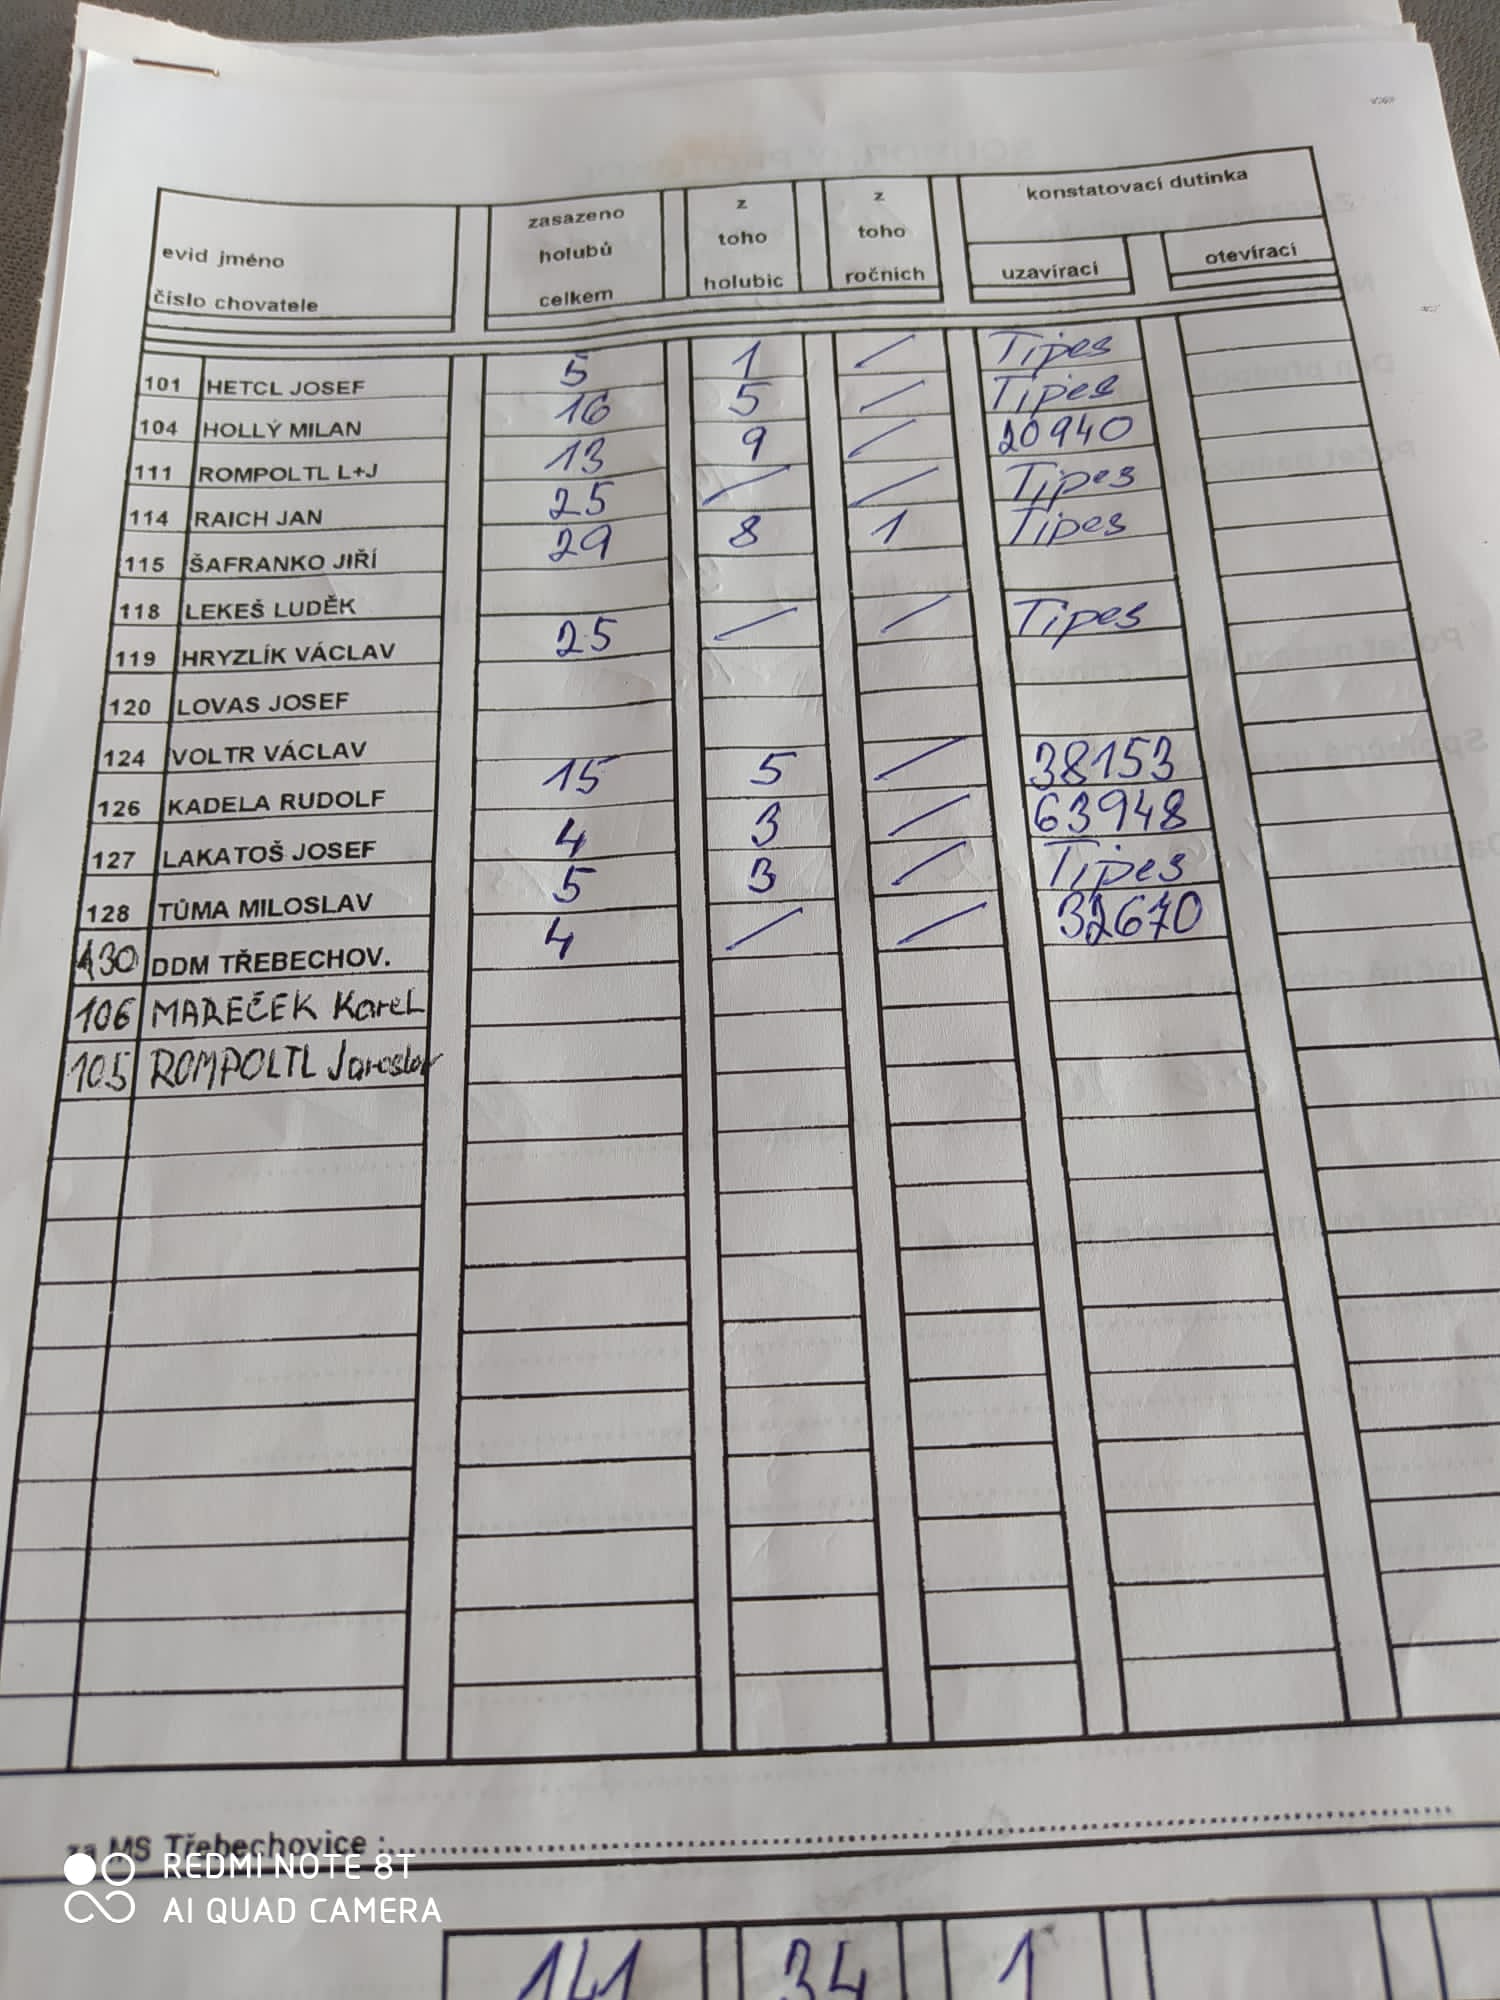 konstatovací dutinka
evid jméno
číslo chovatele
zasazeno
holubů
celkem
z
toho
holubic
z
toho
ročních
uzavírací
otevírací
101 HETCL JOSEF 5 1 / Tipes
104 HOLLÝ MILAN 16 5 / Tipes
111 ROMPOLTL L+J 13 9 / 20940
114 RAICH JAN 25 / / Tipes
115 ŠAFRANKO JIŘÍ 29 8 1 Tipes
118 LEKEŠ LUDĚK
119 HRYZLÍK VÁCLAV 25 / / Tipes
120 LOVAS JOSEF
124 VOLTR VÁCLAV
126 KADELA RUDOLF 15 5 / 38153
127 LAKATOŠ JOSEF 4 3 / 63948
128 TŮMA MILOSLAV 5 3 / Tipes
130 DDM TŘEBECHOV. 4 / / 32670
106 MAREČEK Karel
105 ROMPOLTL Jaroslav
za MS Třebechovice :
REDMI NOTE 8T
AI QUAD CAMERA
141 34 1